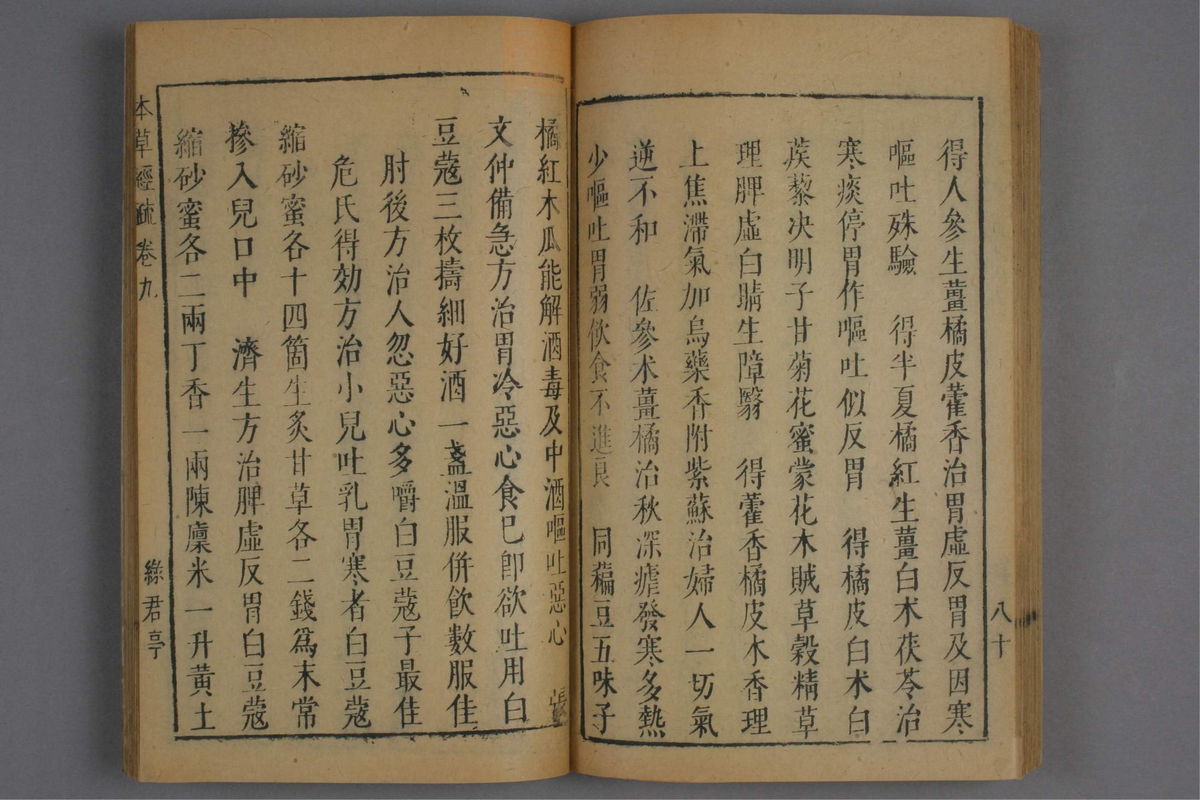 八十
得人參生薑橘皮藿香治胃虛反胃及因寒
嘔吐殊驗 得半夏橘紅生薑白朮茯苓治
寒痰停胃作嘔吐似反胃 得橘皮白朮白
蒺藜決明子甘菊花蜜蒙花木賊草穀精草
理脾虛白睛生障翳 得藿香橘皮木香理
上焦滯氣加烏藥香附紫蘇治婦人一切氣
逆不和 佐參朮薑橘治秋深瘧發寒多熱
少嘔吐胃弱飲食不進良 同藊豆五味子
橘紅木瓜能解酒毒及中酒嘔吐惡心 張
文仲備急方治胃冷惡心食已卽欲吐用白
豆蔻三枚擣細好酒一盞溫服併飲數服佳
肘後方治人忽惡心多嚼白豆蔻子最佳
危氏得効方治小兒吐乳胃寒者白豆蔻
縮砂蜜各十四箇生炙甘草各二錢爲末常
摻入兒口中 濟生方治脾虛反胃白豆蔻
縮砂蜜各二兩丁香一兩陳廩米一升黃土
本草經疏 卷九
綠君亭